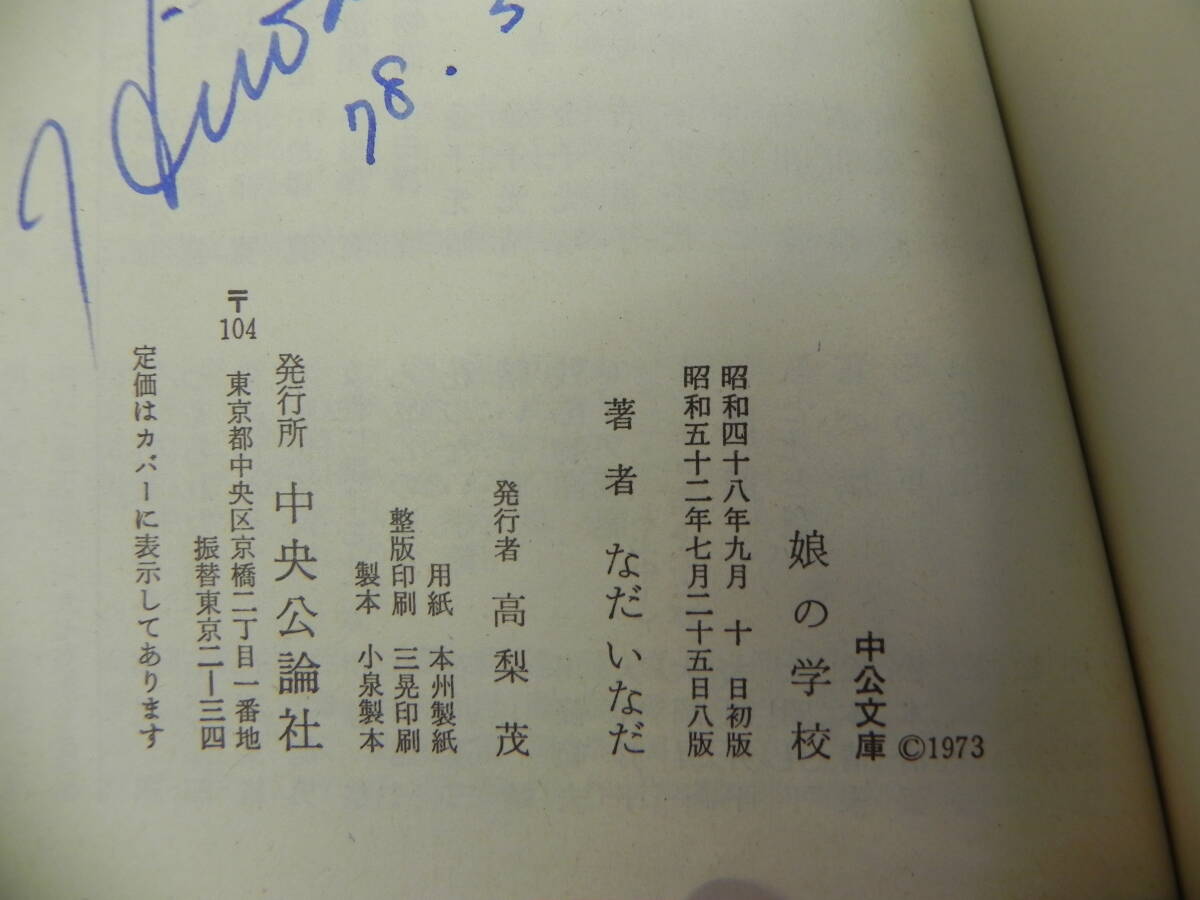 78.
中公文庫
©1973
娘の学校
昭和四十八年九月 十 日初版
昭和五十二年七月二十五日八版
著者 なだいなだ
発行者 高梨 茂
用紙 本州製紙
整版印刷 三晃印刷
製本 小泉製本
発行所 中央公論社
〒104 東京都中央区京橋二丁目一番地
振替東京二―三四
定価はカバーに表示してあります